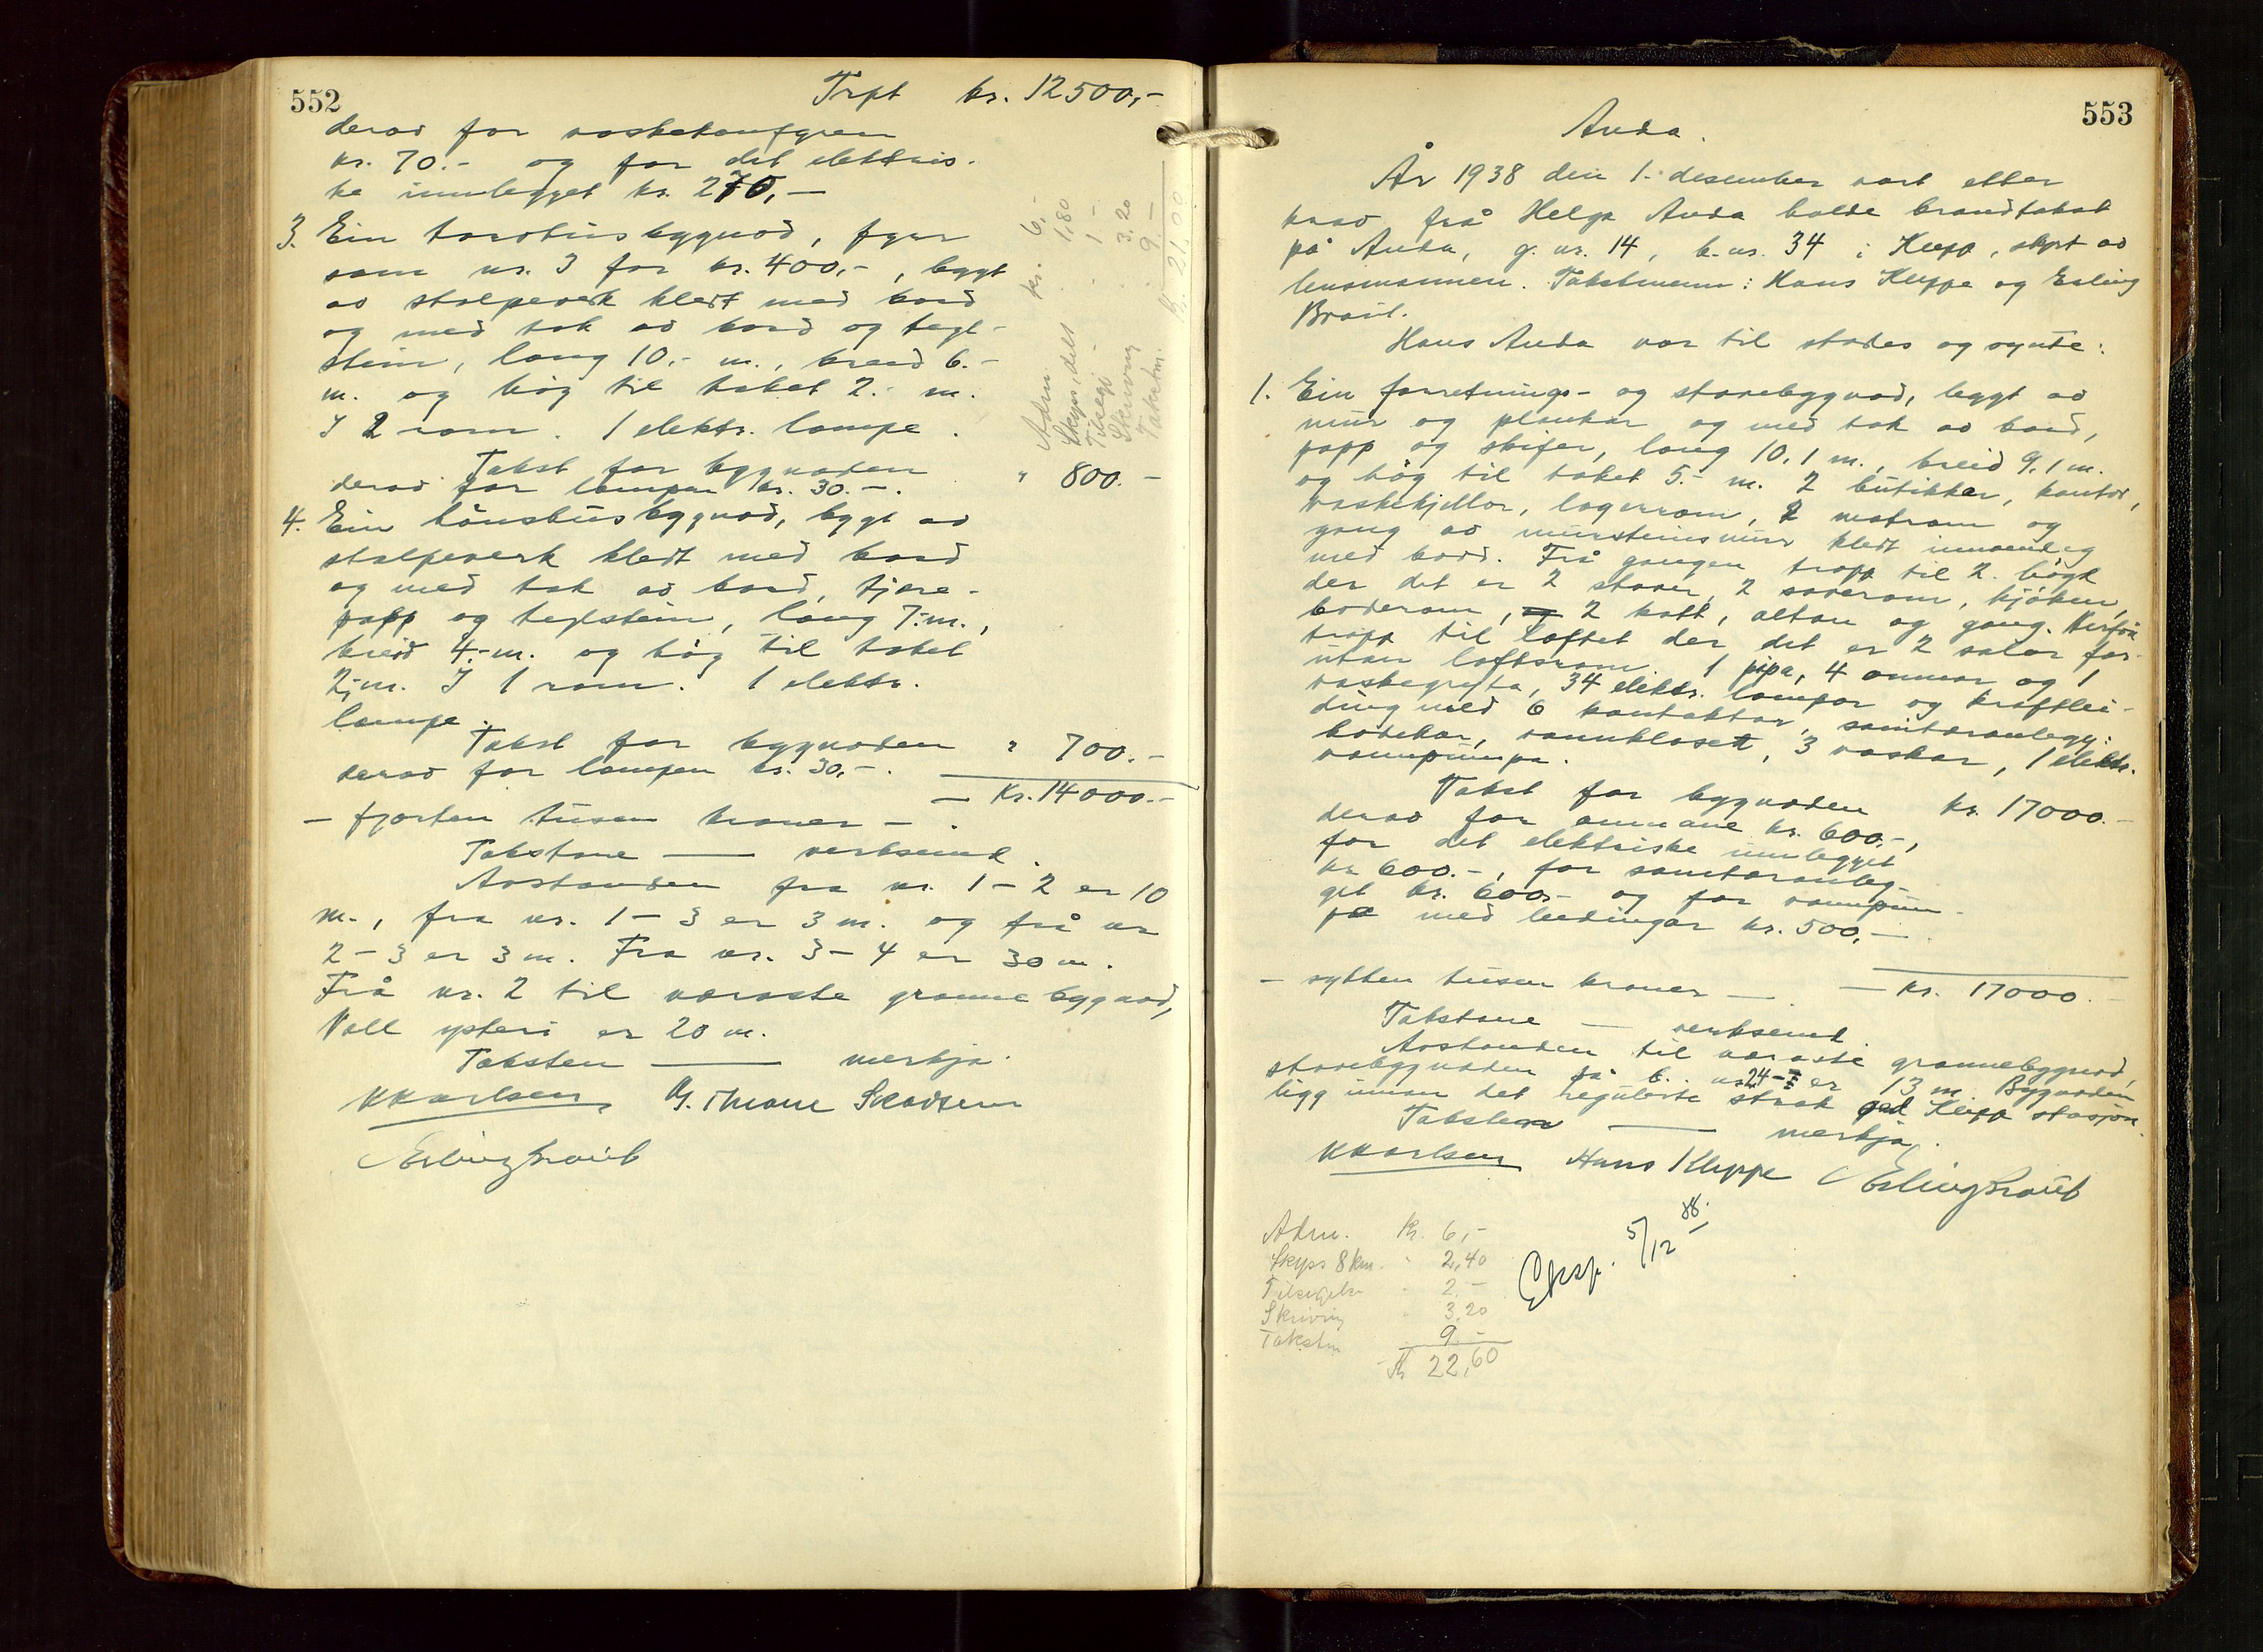 552
Trpt kr. 12500,-
derav for vaskekaupgruen
kr. 70.- og for det elektris-
ke innlegget kr. 270,-
3. Ein torvhusbygnad, fyrr
som nr. 3 for kr. 400,-, bygt
av stolpeverk kledt med bord
og med tak av bord og tegl-
stein, lang 10,- m., breid 6.-
m. og høg til taket 2.- m.
I 2 rom. 1 elektr. lampe.
Takst for bygnaden " 800.-
derav for lampen kr. 30.-.
4. Ein hønshusbygnad, bygt av
stolpeverk kledt med bord
og med tak av bord, tjøre-
papp og teglstein, lang 7.-m.,
breid 4.-m. og høg til taket
2,-m. I 1 rom. 1 elektr.
lampe.
Takst for bygnaden " 700.-
derav for lampen kr. 30,-.
— Kr. 14000.-
— fjorten tusen kroner —.
Takstane — verksemd.
Avstanden fra nr. 1-2 er 10
m., fra nr. 1-3 er 3 m. og frå nr
2-3 er 3 m. Fra nr. 3-4 er 30 m.
Frå nr. 2 til næraste grannebygnad,
Voll ysteri er 20 m.
Taksten — merkja.
KKarlsen G. Thrane Skadsem
Erling Braut
Adm. kr. 6,-
Skyss, delt . 1,80
Tilsegj . 1 -
Skriving . 3.20
Takstm. . 9.-
Kr. 21,00
553
Anda.
År 1938 den 1. desember vart etter
krav frå Helga Anda halde brandtakst
på Anda, g. nr. 14, b. nr. 34 i Klepp, styrt av
lensmannen. Takstmenn: Hans Kleppe og Erling
Braut.
Hans Anda var til stades og synte:
1. Ein forretnings- og stovebygnad, bygt av
mur og plankar og med tak av bord,
papp og skifer, lang 10,1 m., breid 9,1 m.
og høg til taket 5.- m. 2 butikkar, kontor,
vaskekjellar, lagerrom, 2 matrom og
gang av mursteinsmur kledt innvendig
med bord. Frå gangen trapp til 2. høgd
der det er 2 stover, 2 soverom, kjøken,
boderom, 2 kott, altan og gang. Herfrå
trapp til loftet der det er 2 salar for-
utan loftsrom. 1 pipa, 4 omnar og 1
vaskegryta, 34 elektr. lampor og kraftlei-
ding med 6 kontaktar, sanitæranlegg:
badekar, vannklosett, 3 vaskar, 1 elektr.
vannpumpa.
Takst for bygnaden kr. 17000.-
derav for omnane kr. 600,-,
for det elektriske innlegget
kr 600.-, for sanitæranleg-
get kr. 600,- og for vannpum-
pa med leidingar kr. 500,-.
— sytten tusen kroner —. — Kr. 17000.-
Takstane — verksemd.
Avstanden til næraste grannebygnad,
stovebygnaden på b. nr 24-I er 13 m. Bygnaden
ligg innan det regulerte strok ved Klepp stasjon.
Taksten — merkja.
KKarlsen Hans Kleppe Erling Braut
Adm. Kr. 6,-
Skyss 8 km. " 2,40
Tilsigelse " 2.-
Skriving " 3,20
Takstm 9.-
Kr 22,60
Eksp. 5/12 38.